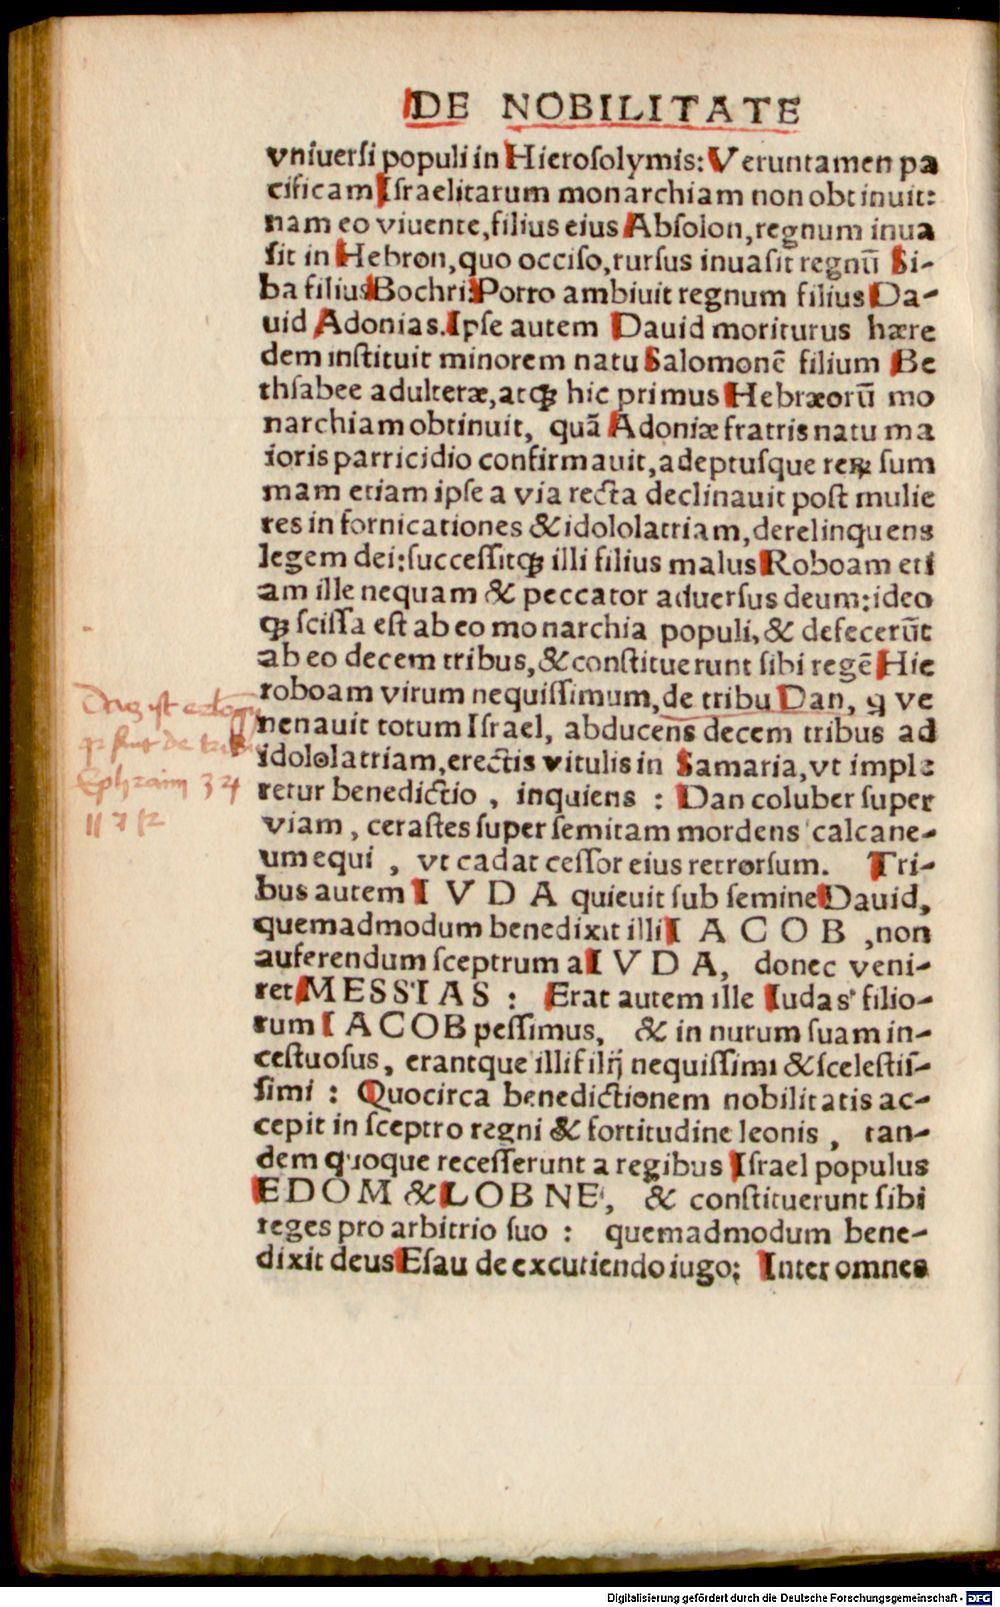 DE NOBILITATE
vniuersi populi in Hierosolymis: Veruntamen pa
cificam Israelitarum monarchiam non obtinuit:
nam eo viuente, filius eius Absolon, regnum inua
sit in Hebron, quo occiso, rursus inuasit regnū Si-
ba filius Bochri: Porro ambiuit regnum filius Da-
uid Adonias. Ipse autem Dauid moriturus hære
dem instituit minorem natu Salomonē filium Be
thsabee adulteræ, atqꝫ hic primus Hebræorū mo
narchiam obtinuit, quā Adoniæ fratris natu ma
ioris parricidio confirmauit, adeptusque reꝝ sum
mam etiam ipse a via recta declinauit post mulie
res in fornicationes & idololatriam, derelinquens
legem dei: successitqꝫ illi filius malus Roboam eti
am ille nequam & peccator aduersus deum: ideo
qꝫ scissa est ab eo monarchia populi, & defecerūt
ab eo decem tribus, & constituerunt sibi regē Hie
roboam virum nequissimum, de tribu Dan, q ve
nenauit totum Israel, abducens decem tribus ad
idololatriam, erectis vitulis in Samaria, vt imple
retur benedictio, inquiens: Dan coluber super
viam, cerastes super semitam mordens calcane-
um equi, vt cadat cessor eius retrorsum. Tri-
bus autem IVDA quieuit sub semine Dauid,
quemadmodum benedixit illi IACOB, non
auferendum sceptrum a IVDA, donec veni-
ret MESSIAS: Erat autem ille Iudas filio-
rum IACOB pessimus, & in nurum suam in-
cestuosus, erantque illi filij nequissimi & scelestis-
simi: Quocirca benedictionem nobilitatis ac-
cepit in sceptro regni & fortitudine leonis, tan-
dem quoque recesserunt a regibus Israel populus
EDOM & LOBNE, & constituerunt sibi
reges pro arbitrio suo: quemadmodum bene-
dixit deus Esau de excutiendo iugo; Inter omnes
de
Ephraim 3 4
11 7 12
Digitalisierung gefördert durch die Deutsche Forschungsgemeinschaft - DFG